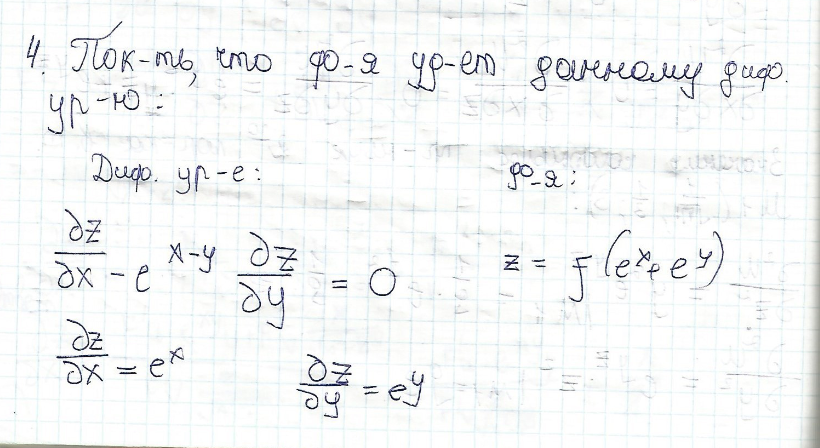 4. Пок-ть, что ф-я ур-ет данному диф.
ур-ю:
Диф. ур-е: ф-я:
∂z/∂x - e^(x-y) ∂z/∂y = 0 z = f(e^x + e^y)
∂z/∂x = e^x ∂z/∂y = e^y